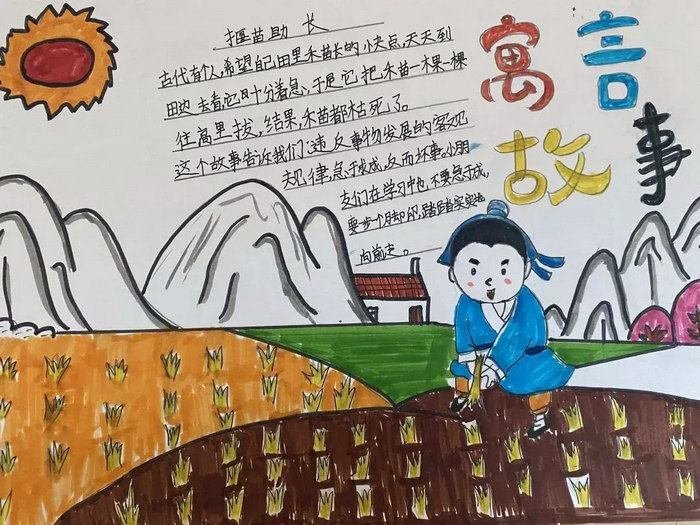 揠苗助长
古代有个人,希望自己田里禾苗长的小快点,天天到
田边去看,它十分着急,于是它把禾苗一棵一棵
往高里拔,结果,禾苗都枯死了。
这个故事告诉我们:违反事物发展的客观
规律,急于求成,反而坏事。小朋
友们在学习中也不要急于成,
要步个脚印,踏踏实实地
向前走。
寓言
故事